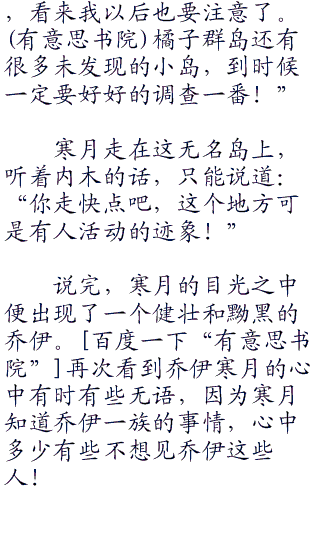 ，看来我以后也要注意了。
(有意思书院)橘子群岛还有
很多未发现的小岛，到时候
一定要好好的调查一番！”
寒月走在这无名岛上，
听着内木的话，只能说道：
“你走快点吧，这个地方可
是有人活动的迹象！”
说完，寒月的目光之中
便出现了一个健壮和黝黑的
乔伊。[百度一下“有意思书
院”]再次看到乔伊寒月的心
中有时有些无语，因为寒月
知道乔伊一族的事情，心中
多少有些不想见乔伊这些
人！